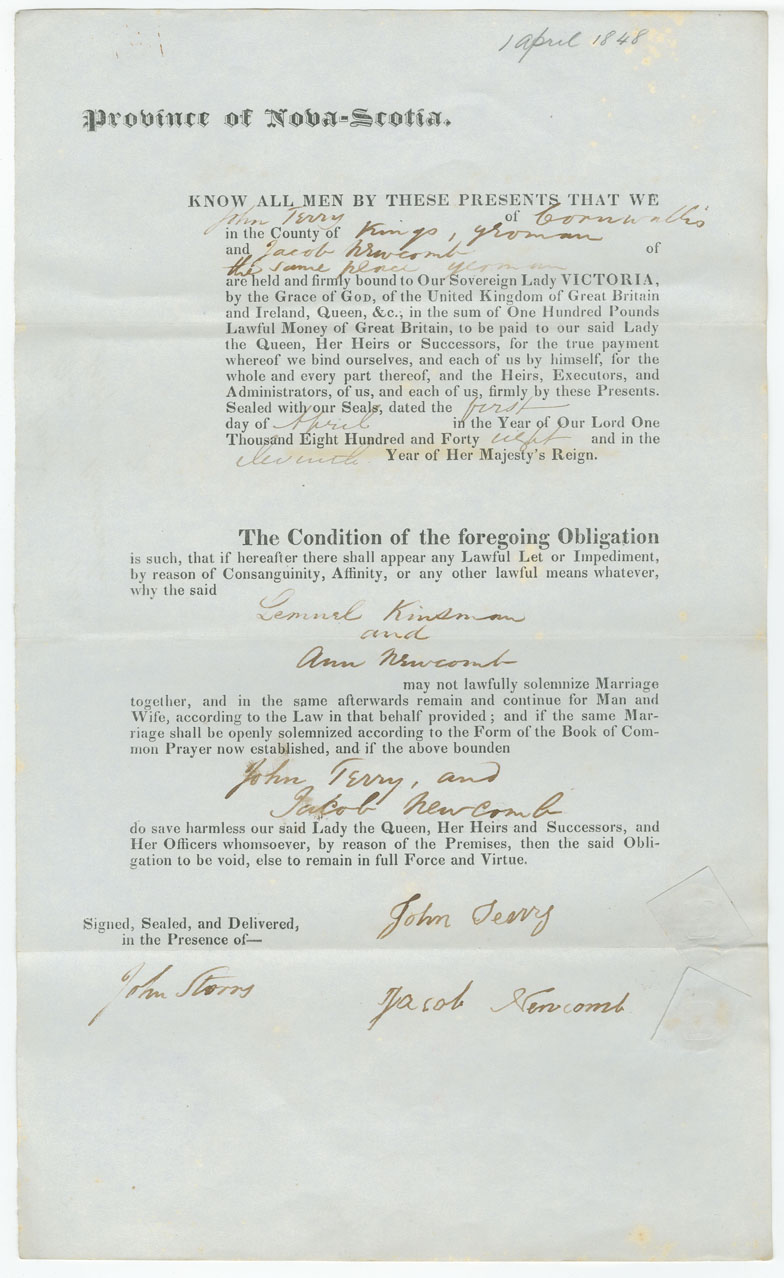 1 April 1848
Province of Nova-Scotia.
KNOW ALL MEN BY THESE PRESENTS THAT WE
John Terry of Cornwallis
in the County of Kings, yeoman
and Jacob Newcomb of
the same place yeoman
are held and firmly bound to Our Sovereign Lady VICTORIA,
by the Grace of GOD, of the United Kingdom of Great Britain
and Ireland, Queen, &c., in the sum of One Hundred Pounds
Lawful Money of Great Britain, to be paid to our said Lady
the Queen, Her Heirs or Successors, for the true payment
whereof we bind ourselves, and each of us by himself, for the
whole and every part thereof, and the Heirs, Executors, and
Administrators, of us, and each of us, firmly by these Presents.
Sealed with our Seals, dated the first
day of April in the Year of Our Lord One
Thousand Eight Hundred and Forty eight and in the
eleventh Year of Her Majesty's Reign.
The Condition of the foregoing Obligation
is such, that if hereafter there shall appear any Lawful Let or Impediment,
by reason of Consanguinity, Affinity, or any other lawful means whatever,
why the said
Lemuel Kinsman
and
Ann Newcomb
may not lawfully solemnize Marriage
together, and in the same afterwards remain and continue for Man and
Wife, according to the Law in that behalf provided; and if the same Mar-
riage shall be openly solemnized according to the Form of the Book of Com-
mon Prayer now established, and if the above bounden
John Terry, and
Jacob Newcomb
do save harmless our said Lady the Queen, Her Heirs and Successors, and
Her Officers whomsoever, by reason of the Premises, then the said Obli-
gation to be void, else to remain in full Force and Virtue.
Signed, Sealed, and Delivered,
in the Presence of—
John Terry
John Storrs
Jacob Newcomb